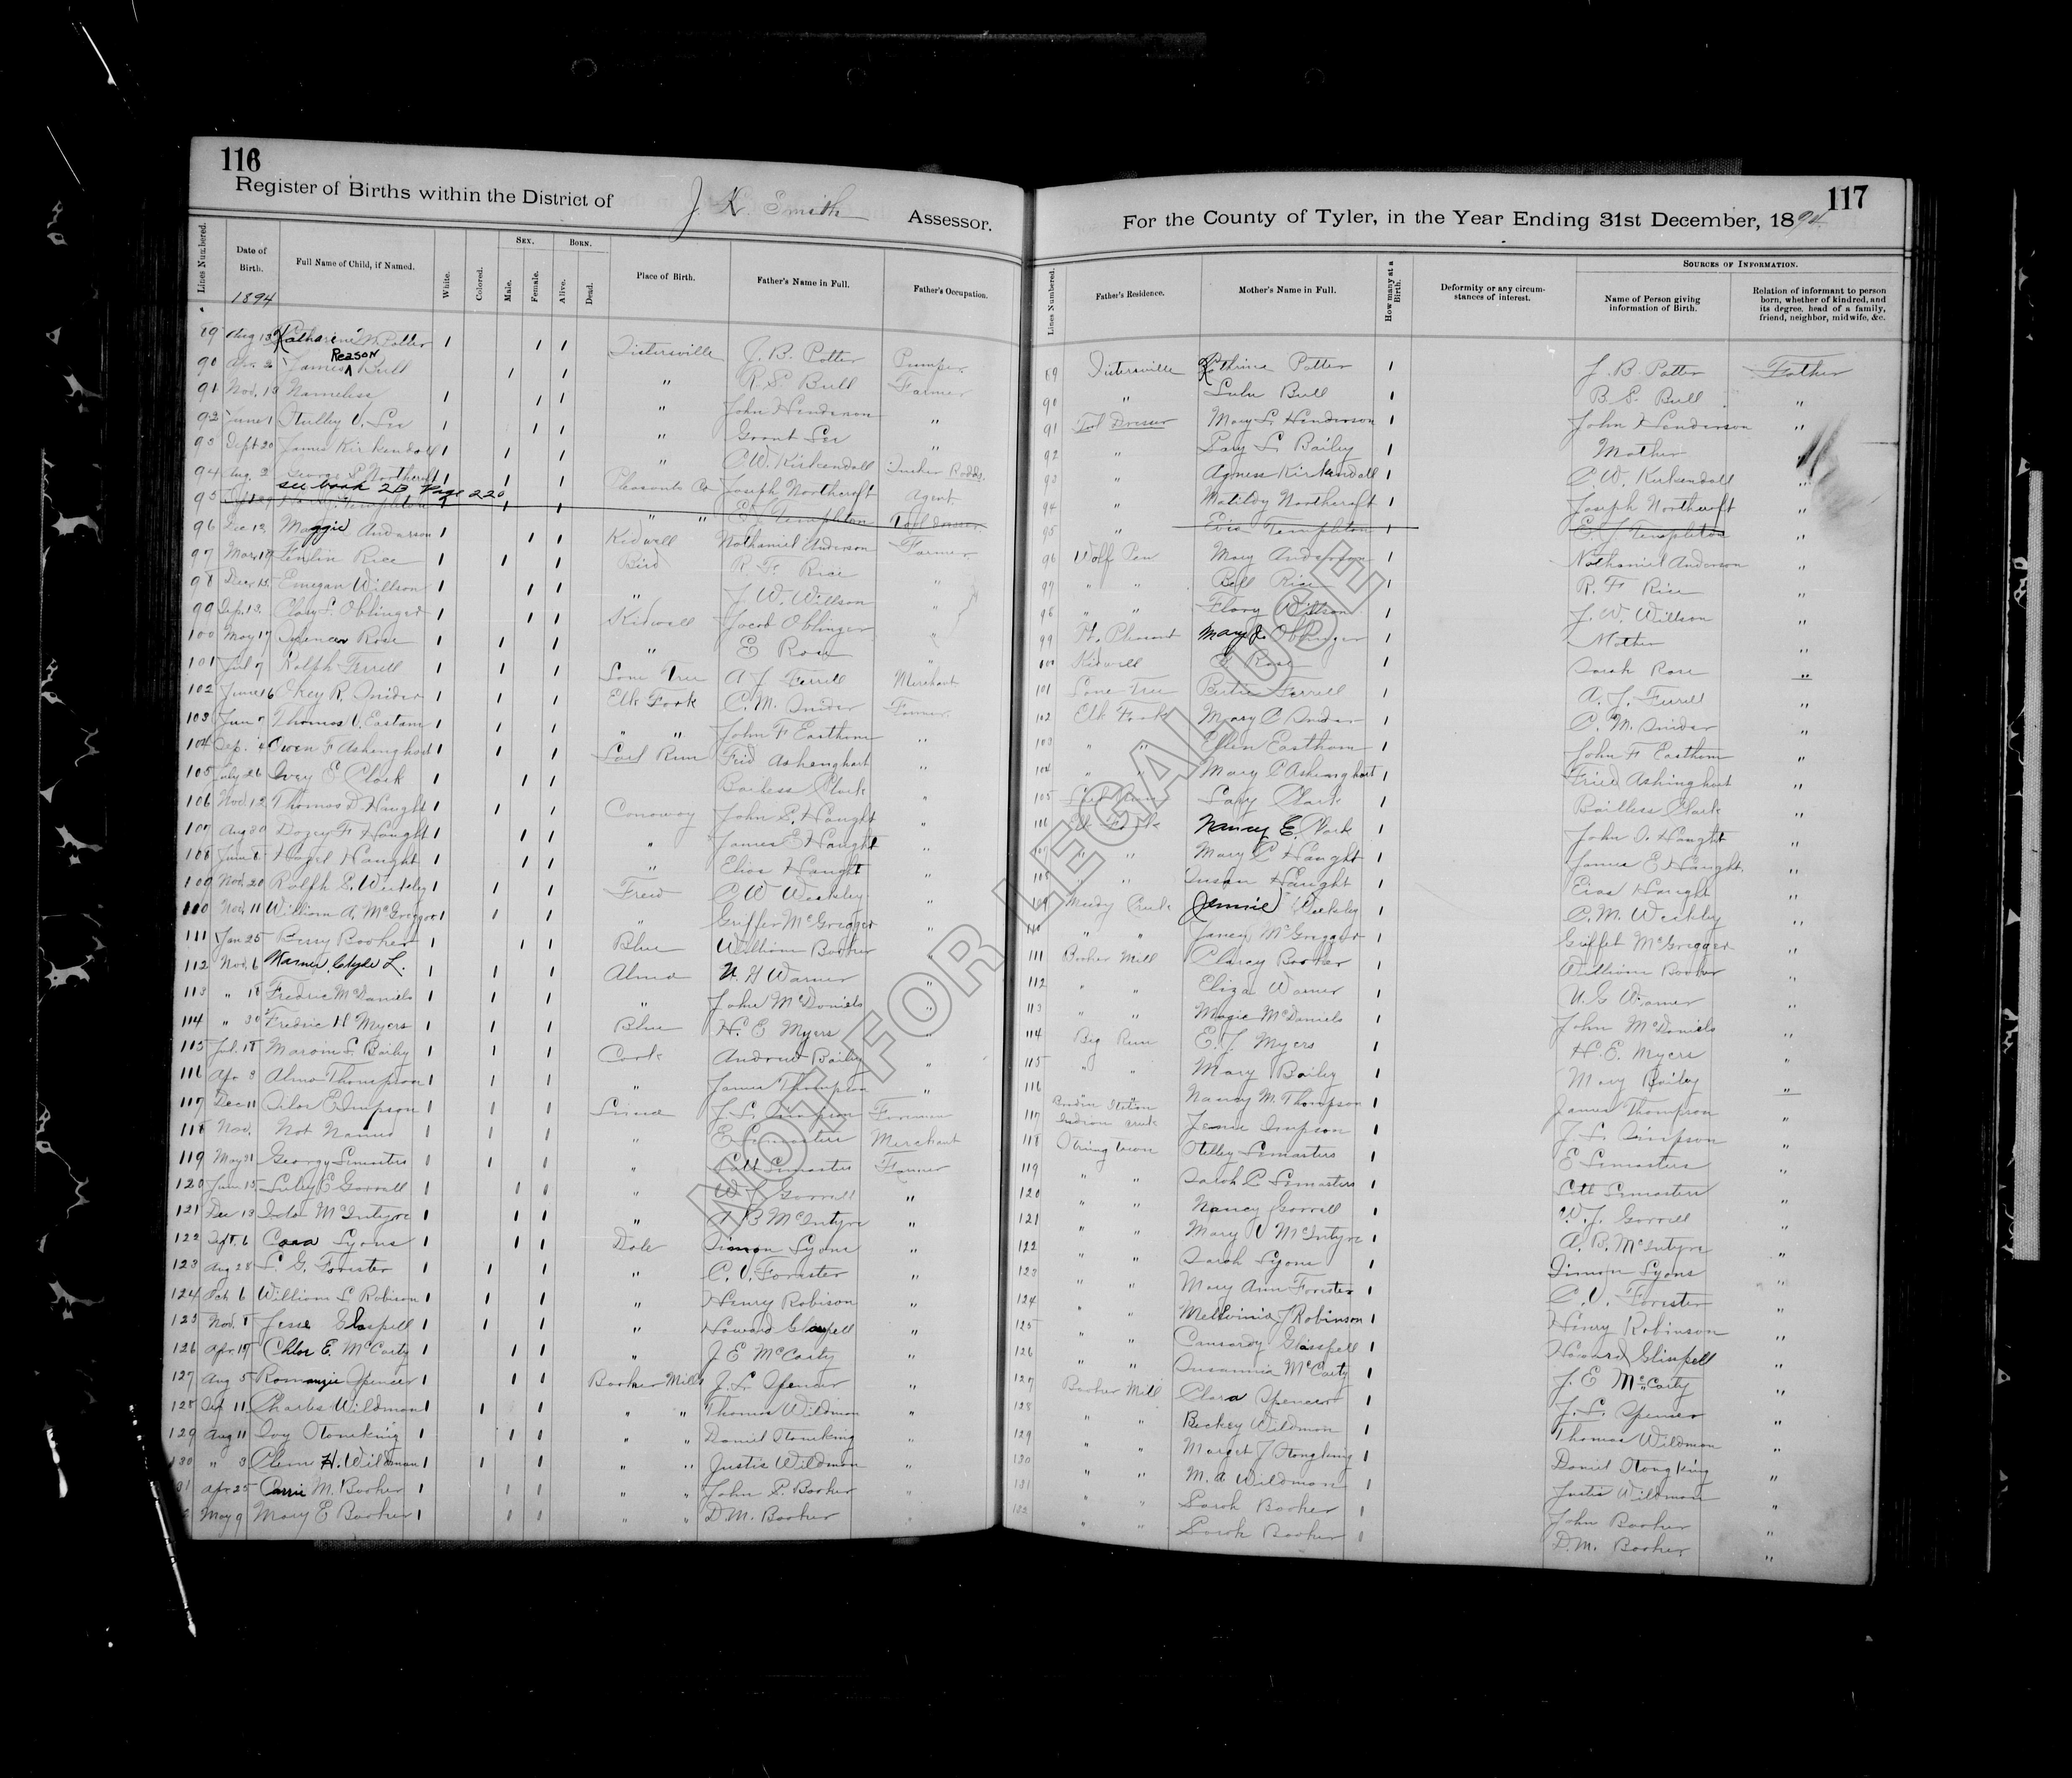 116
Register of Births within the District of J. K. Smith Assessor.
Lines Numbered. Date of Birth. Full Name of Child, if Named. White. Colored. Sex. Male. Female. Born. Alive. Dead. Place of Birth. Father's Name in Full. Father's Occupation.
1894
89 Aug 13 Katharine M Potter 1 1 1 Sistersville J. B. Potter Pumper
90 James Reason Bull 1 1 " R. S. Bull Farmer
91 Nov. 13 Nameless 1 1 1 " John Henderson "
92 June 1 1 1 1 " Grant "
93 Sept 20 James Kirkendall 1 1 1 " C. W. Kirkendall
94 Aug. 3 George S Northcraft 1 1 1 Pleasants Co Joseph Northcraft Agent
see book 2B Page 220
95 Sept 29 Templeton 1 1 1 " " E. J. Templeton Tool dresser
96 Dec 12 Maggie Anderson 1 1 1 Kidwell Nathaniel Anderson Farmer
97 Mar. 17 Rice 1 1 1 Bird R. F. Rice
98 Dec. 15 Emegan Willson 1 1 1 " J. W. Willson "
99 Sep. 13 Clary S. Oblinger 1 1 1 Kidwell Jacob Oblinger "
100 May 17 Spencer Rose 1 1 1 " E Rose "
101 Jul 7 Ralph Ferrell 1 1 1 Lone Tree A J Ferrell Merchant
102 June 16 Okey R. Snider 1 1 1 Elk Fork C. M. Snider Farmer
103 Jun 7 Thomas V. Eastam 1 1 1 " " John F Easthom "
104 Sep. 4 Owen F Ashenghart 1 1 1 Fred Ashenghart "
105 July 26 Ivey E Clark 1 1 1 Bailess Clark "
106 Nov. 12 Thomas D. Haught 1 1 1 Conaway John S. Haught "
107 Aug 30 Dozey F Haught 1 1 1 " James E Haught "
108 June 8 Hazel Haught 1 1 1 " Elias Haught "
109 Nov. 20 Ralph S. Weekley 1 1 1 Freed C W Weekley "
110 Nov. 11 William A. McGregger 1 1 1 " Griffer McGregger "
111 Jan 25 Bessy Booher 1 1 1 Blue William Booher "
112 Nov. 6 Warner, Clyde L. 1 1 1 Alma U. G Warner "
113 " 18 Fredric McDaniels 1 1 1 " John McDaniels "
114 " 30 Fredric H Myers 1 1 1 Blue H. E Myers "
115 Jul. 18 Marvin L. Baily 1 1 1 Cook Andrew Baily "
116 Apr 3 Alma Thompson 1 1 1 " James Thompson "
117 Dec 11 Silas E Simpson 1 1 1 J. L. Simpson Farmer
118 Nov. Not Named 1 1 1 " E Lemasters Merchant
119 May 21 Georgy Lemasters 1 1 1 " Lott Lemasters Farmer
120 June 15 E Gorrell 1 1 1 " W J Gorrell "
121 Dec 13 Ida McIntyre 1 1 1 " A B McIntyre "
122 Sept. 6 Cora Lyons 1 1 1 Dale Simon Lyons "
123 Aug 28 L. G. Forester 1 1 1 " C. V. Forester "
124 Feb 6 William L Robison 1 1 1 " Henry Robison "
125 Nov. 1 Jesse Glaspell 1 1 1 " Howard Glaspell "
126 Apr. 17 Chloe E. McCarty 1 1 1 " J E McCarty "
127 Aug 5 Romanzie Spencer 1 1 1 Booher Mills J. L. Spencer "
128 Sep 11 Charles Wildman 1 1 1 " " Thomas Wildman "
129 Aug 11 Ivy Stoneking 1 1 1 " " Daniel Stoneking "
130 " 3 Clem H. Wildman 1 1 1 " " Justis Wildman "
31 Apr 25 Carrie M. Booher 1 1 1 " " John S. Booher "
May 9 Mary E Booher 1 1 1 " " D. M. Booher "
117
For the County of Tyler, in the Year Ending 31st December, 1894.
Lines Numbered. Father's Residence. Mother's Name in Full. How many at a Birth. Deformity or any circumstances of interest. Sources of Information. Name of Person giving information of Birth. Relation of informant to person born, whether of kindred, and its degree, head of a family, friend, neighbor, midwife, &c.
89 Sistersville Kathrine Potter 1 J. B. Potter Father
90 " Lulu Bull 1 B. S. Bull "
91 Tool Dresser Mary L. Henderson 1 John Henderson "
92 " L. Bailey 1 Mother
93 " Agness Kirkendall 1 C. W. Kirkendall "
94 " Matilda Northcraft 1 Joseph Northcraft "
95 " Templeton 1 E. J. Templeton "
96 Wolf Pen Mary Anderson 1 Nathaniel Anderson "
97 " " Bell Rice 1 R. F. Rice "
98 " " Flory Willson 1 J. W. Willson "
99 Pt. Pleasant Mary J. Oblinger 1 Mother "
100 Kidwell Rose 1 Sarah Rose "
101 Lone Tree Bertie Ferrell 1 A. J. Ferrell "
102 Elk Fork Mary C Snider 1 C. M. Snider "
103 " " Ellen Easthom 1 John F Easthom "
104 " " Mary C Ashenghart 1 Fried Ashinghart "
105 Clark 1 Bailless Clark "
106 Elk Fork Nancy E. Clark 1 John S. Haught "
107 " " Mary C Haught 1 James E Haught "
108 " " Susan Haught 1 Eias Haught "
109 Muddy Creek Jennie Weekley 1 C. M. Weekley "
110 " " Janey McGregger 1 Griffet McGregger "
111 Booher Mill Clarcy Booher 1 William Booher "
112 " " Eliza Warner 1 U. G Warner "
113 " " Magie McDaniels 1 John McDaniels "
114 Big Run E. J. Myers 1 H. E. Myers "
115 " " Mary Baily 1 Mary Bailey "
116 Nancy M. Thompson 1 James Thompson "
117 Station Indian Creek Jennie Simpson 1 J. L. Simpson "
118 Stringtown Otelley Lemasters 1 E Lemasters "
119 " " Sarah C Lemasters 1 Lott Lemasters "
120 " " Nancy Gorrell 1 W. J. Gorrell "
121 " " Mary V McIntyre 1 A. B. McIntyre "
122 " " Sarah Lyons 1 Simon Lyons "
123 " " Mary Ann Forester 1 C. V. Forester "
124 " " Mellvinia J Robinson 1 Henry Robinson "
125 " " Glasspell 1 Howard Glispell "
126 " " Susannia McCarty 1 J. E McCarty "
127 Booher Mill Clara Spencer 1 J. L. Spencer "
128 " " Beckey Wildman 1 Thomas Wildman "
129 " " Marget J Stongking 1 Daniel Stongking "
130 " " M. A Wildman 1 Justis Wildman "
131 " " Sarah Booher 1 John Booher "
132 " " Sarah Booher 1 D. M. Booher "
NOT FOR LEGAL USE